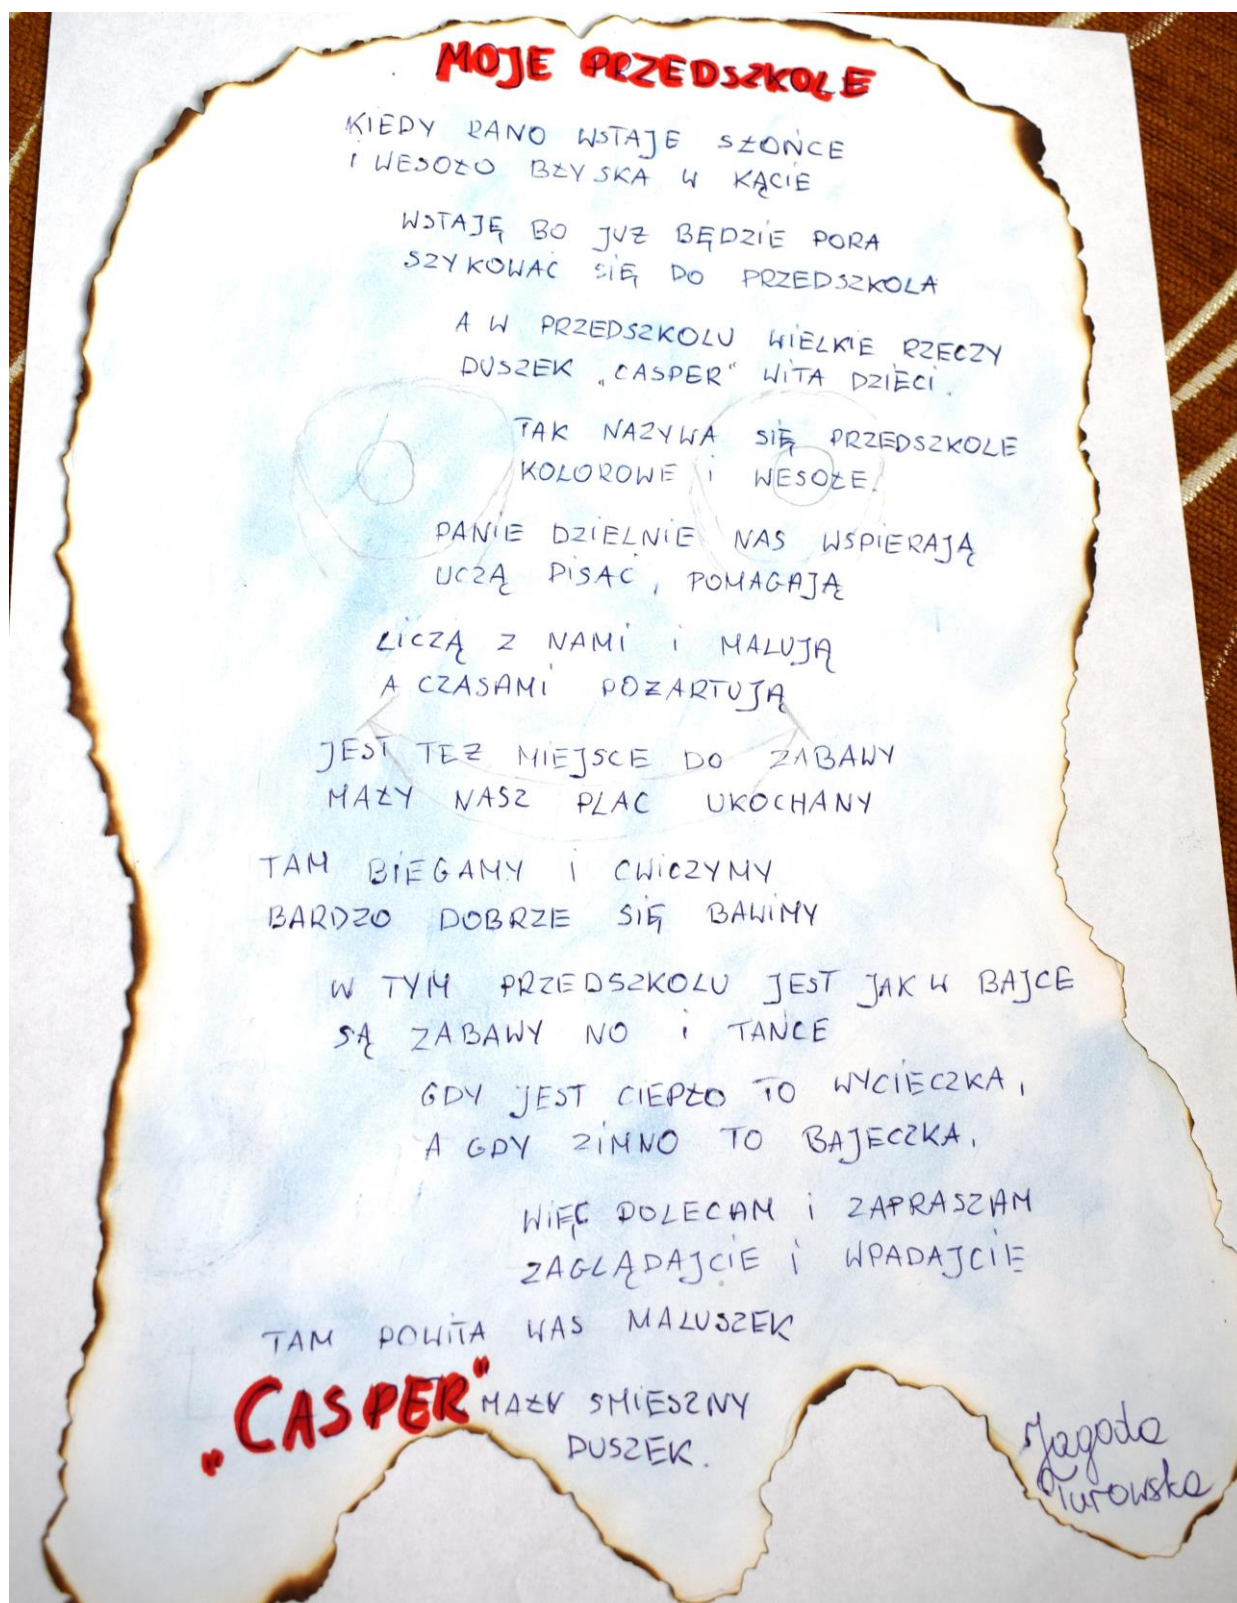 MOJE PRZEDSZKOLE
KIEDY RANO WSTAJE SŁOŃCE
I WESOŁO BŁYSKA W KĄCIE
WSTAJĘ BO JUŻ BĘDZIE PORA
SZYKOWAĆ SIĘ DO PRZEDSZKOLA
A W PRZEDSZKOLU WIELKIE RZECZY
DUSZEK „CASPER" WITA DZIECI.
TAK NAZYWA SIĘ PRZEDSZKOLE
KOLOROWE I WESOŁE.
PANIE DZIELNIE NAS WSPIERAJĄ
UCZĄ PISAĆ, POMAGAJĄ
LICZĄ Z NAMI I MALUJĄ
A CZASAMI POŻARTUJĄ
JEST TEŻ MIEJSCE DO ZABAWY
MAŁY NASZ PLAC UKOCHANY
TAM BIEGAMY I CWICZYMY
BARDZO DOBRZE SIĘ BAWIMY
W TYM PRZEDSZKOLU JEST JAK W BAJCE
SĄ ZABAWY NO I TANCE
GDY JEST CIEPŁO TO WYCIECZKA,
A GDY ZIMNO TO BAJECZKA.
WIĘC POLECAM I ZAPRASZAM
ZAGLĄDAJCIE I WPADAJCIE
TAM POWITA WAS MALUSZEK
„CASPER" MAŁY SMIESZNY
DUSZEK.
Jagoda
Turowska